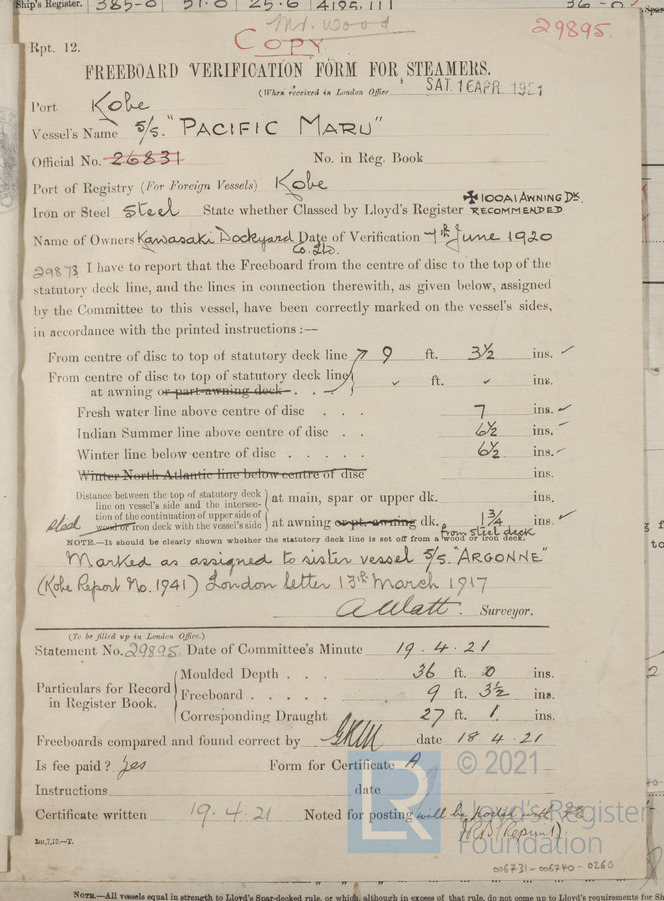 Ship's Register. 385-0 57.0 25.6 4195.111 36-0
Mr. Wood
COPY
29895.
Rpt. 12.
FREEBOARD VERIFICATION FORM FOR STEAMERS.
(When received in London Office SAT. 16 APR. 1921
Port Kobe
Vessel's Name S/S. "PACIFIC MARU"
Official No. 26831 No. in Reg. Book
Port of Registry (For Foreign Vessels) Kobe
Iron or Steel Steel State whether Classed by Lloyd's Register ✠100A1 AWNING DK. RECOMMENDED
Name of Owners Kawasaki Dockyard Co. Ltd. Date of Verification 7th June 1920
29873 I have to report that the Freeboard from the centre of disc to the top of the
statutory deck line, and the lines in connection therewith, as given below, assigned
by the Committee to this vessel, have been correctly marked on the vessel's sides,
in accordance with the printed instructions :—
From centre of disc to top of statutory deck line 9 ft. 3½ ins. ✓
From centre of disc to top of statutory deck line
at awning or part-awning deck . . . ✓ ft. ✓ ins.
Fresh water line above centre of disc . . . 7 ins. ✓
Indian Summer line above centre of disc . . 6½ ins. ✓
Winter line below centre of disc . . . . . 6½ ins. ✓
Winter North Atlantic line below centre of disc ins.
Distance between the top of statutory deck
line on vessel's side and the intersec- at main, spar or upper dk. ins.
tion of the continuation of upper side of
steel wood or iron deck with the vessel's side at awning or pt. awning dk. 1¾ ins. ✓
from steel deck
NOTE.—It should be clearly shown whether the statutory deck line is set off from a wood or iron deck.
Marked as assigned to sister vessel S/S. "ARGONNE"
(Kobe Report No. 1941) London letter 13th March 1917
A Watt. Surveyor.
(To be filled up in London Office.)
Statement No. 29895. Date of Committee's Minute 19. 4. 21
Particulars for Record in Register Book.
Moulded Depth . . . 36 ft. 0 ins.
Freeboard . . . . . 9 ft. 3½ ins.
Corresponding Draught 27 ft. 1. ins.
Freeboards compared and found correct by date 18 4. 21
Is fee paid? Yes Form for Certificate A
Instructions date
Certificate written 19. 4. 21 Noted for posting will be posted with
(Reprint).
2m,7,19.—T.
© 2021
LR
Lloyd's Register
Foundation
006731-006740-0260
NOTE.—All vessels equal in strength to Lloyd's Spar-decked rule, or which, although in excess of that rule, do not come up to Lloyd's requirements for